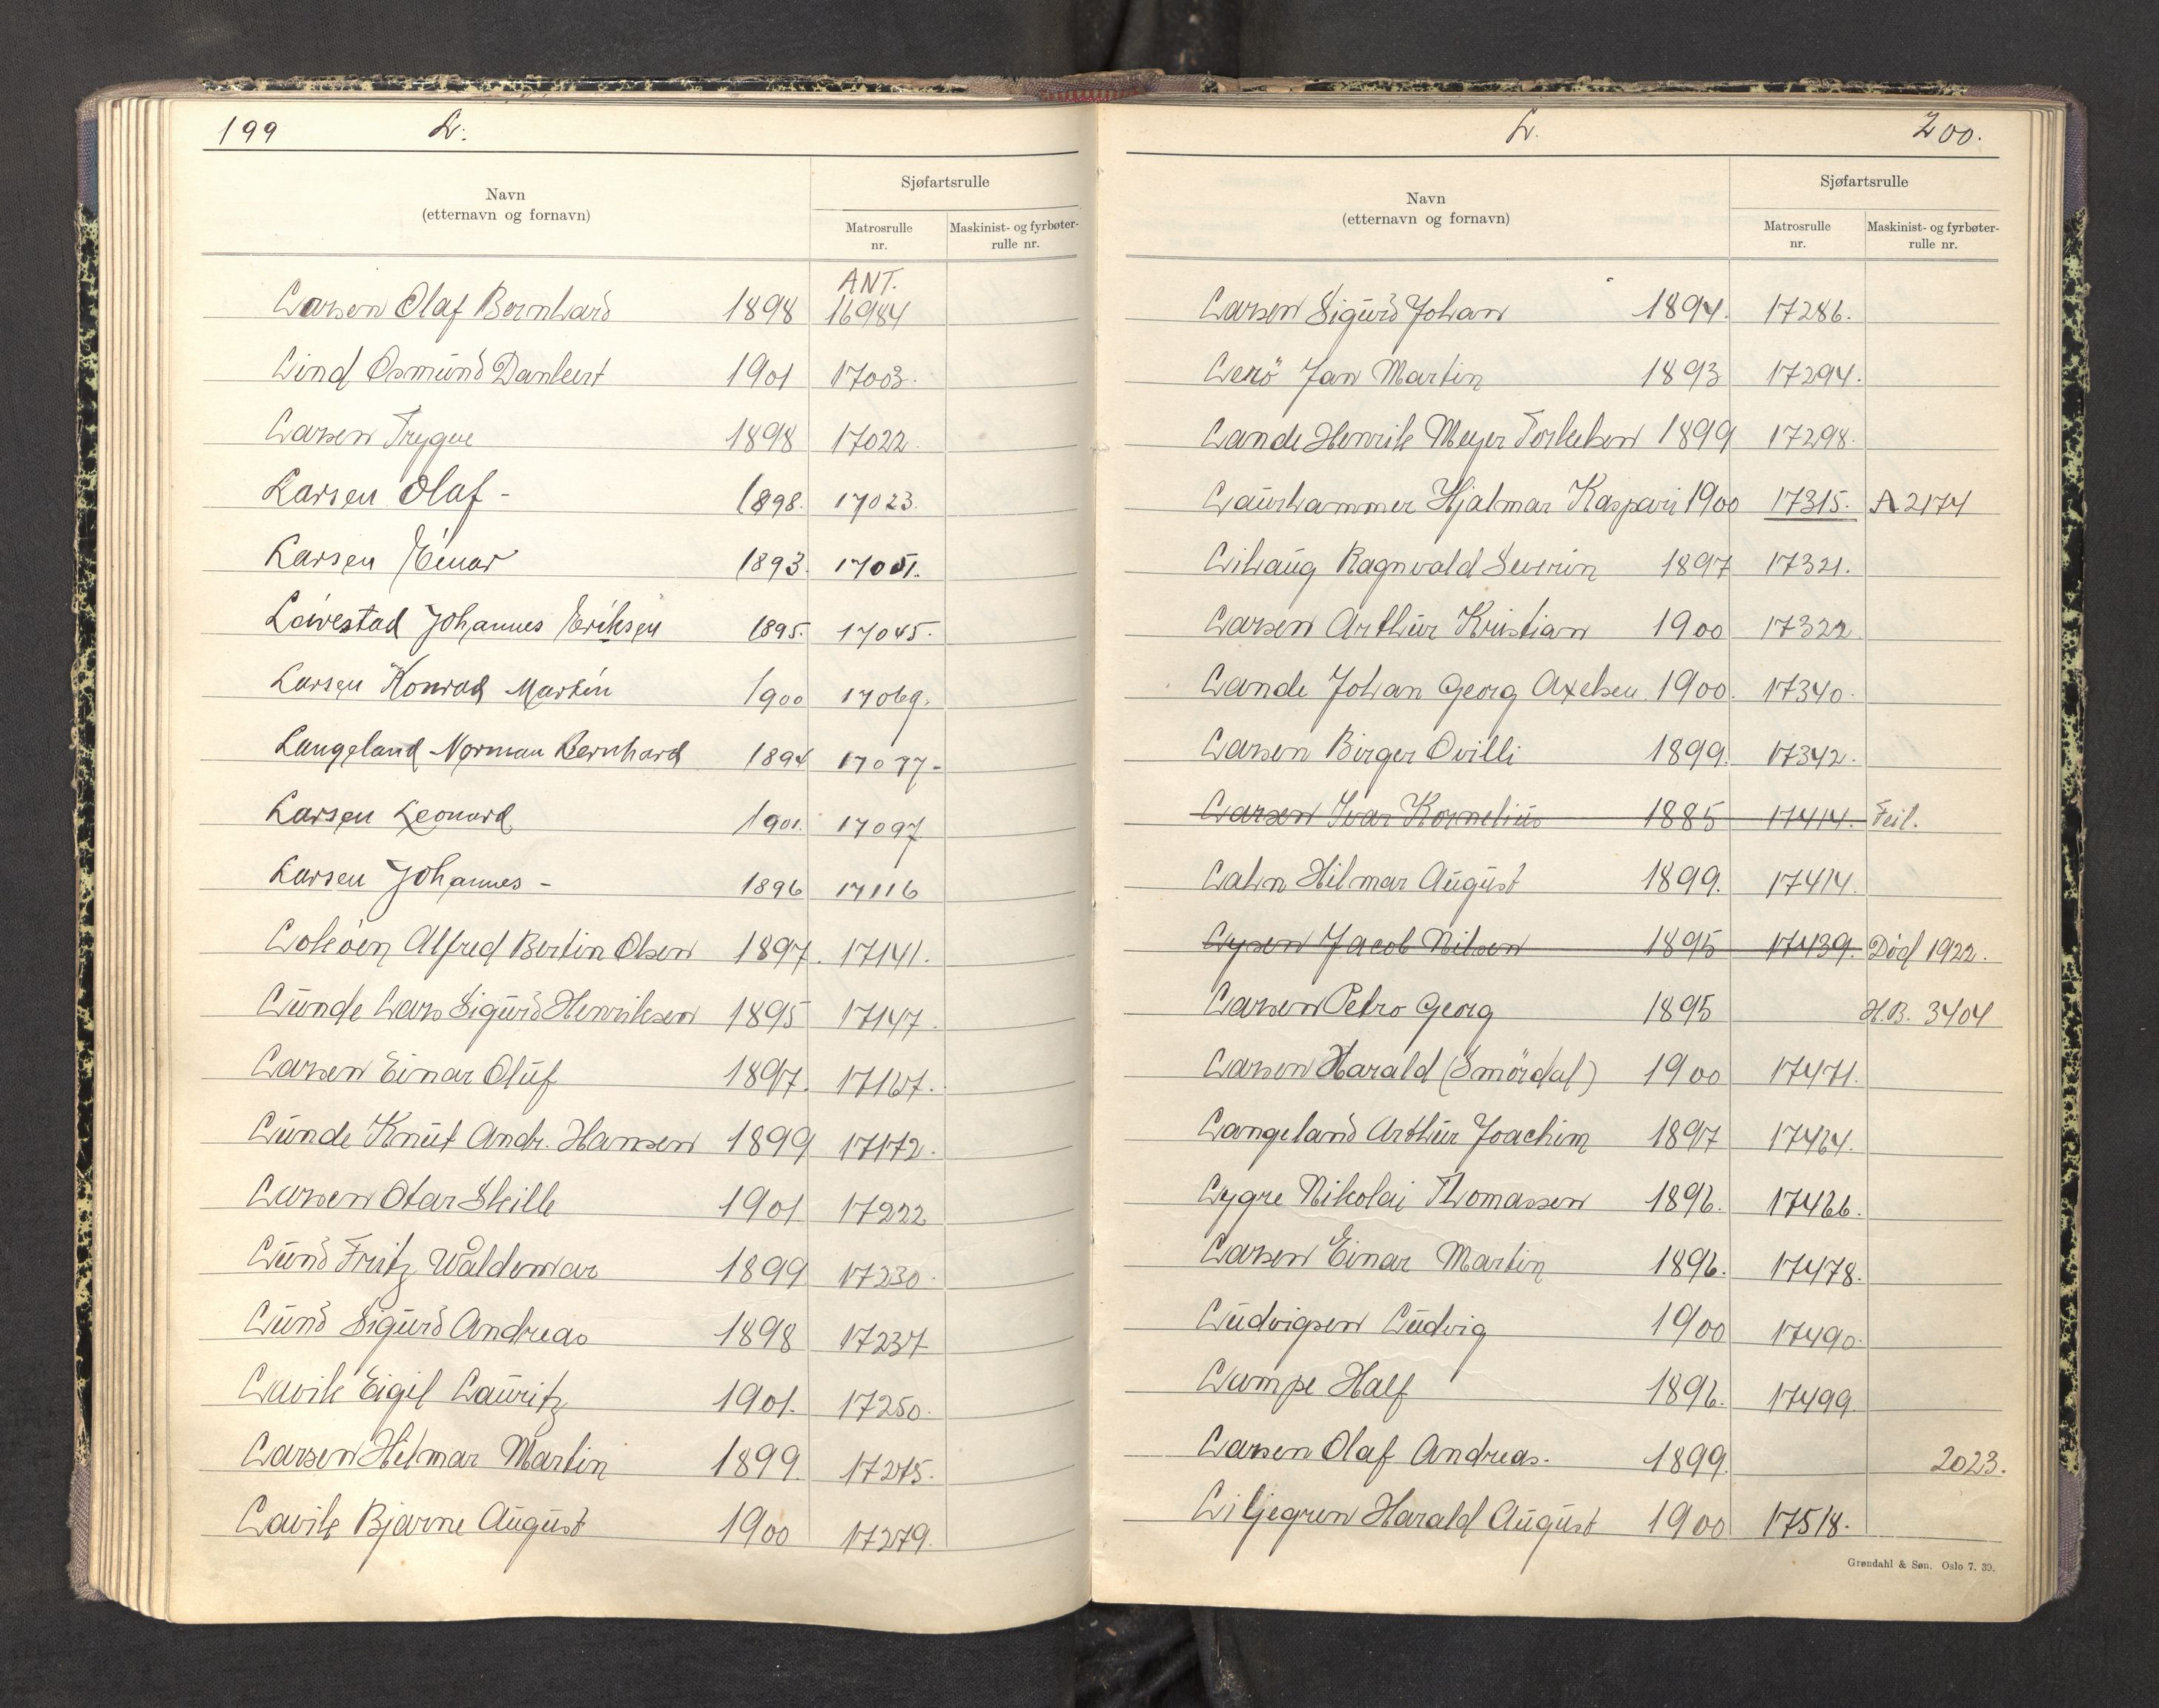 199 L.
Navn
(etternavn og fornavn)
Sjøfartsrulle
Matrosrulle
nr.
Maskinist- og fyrbøter-
rulle nr.
ANT.
Larsen Olaf Bernhard 1898 16984
Lind Osmund Dankert 1901 17003.
Larsen Trygve 1898 17022.
Larsen Olaf - 1898. 17023.
Larsen Einar 1893. 17051.
Johannes Eriksen 1895. 17045.
Larsen Konrad Martin 1900 17069.
Langeland Norman Bernhard 1894 17077-
Larsen Leonard 1901. 17097
Larsen Johannes - 1896 17116
Alfred Bertin Olsen 1897. 17141.
Lunde Lars Sigurd Henriksen 1895 17147.
Larsen Einar Oluf 1897. 17167.
Lunde Knut Andr. Hansen 1899 17172.
Larsen Otar 1901 17222
Lund Fritz Waldemar 1899 17230.
Lund Sigurd Andreas 1898 17237
Lavik Eigil Lauritz 1901. 17250.
Larsen Hilmar Martin 1899 17275.
Lavik Bjarne August 1900 17279.
L. 200.
Navn
(etternavn og fornavn)
Sjøfartsrulle
Matrosrulle
nr.
Maskinist- og fyrbøter-
rulle nr.
Larsen Sigurd Johan 1894. 17286.
Lerö Jan Martin 1893 17294.
Lande Henrik Meyer Torleksen 1899 17298.
Laurhammer Hjalmar Kaspari 1900 17315. A 2174
Lihaug Ragnvald Severin 1897 17321.
Larsen Arthur Kristian 1900 17322.
Lande Johan Georg Axelsen. 1900. 17340.
Larsen Birger Ovilli 1899. 17342.
Larsen Ivar Kornelius 1885 17414. Feil.
Lahn Hilmar August 1899. 17414.
Lysen Jacob Nilsen 1895 17439. Död 1922.
Larsen Petro Georg 1895 H.B. 3404
Larsen Harald (Smördal) 1900 17471.
Langeland Arthur Joachim 1897 17464.
Lygre Nikolai Thomassen 1896. 17466.
Larsen Einar Martin 1896. 17478.
Ludvigsen Ludvig 1900 17490.
Lampe Half 1896. 17499.
Larsen Olaf Andreas. 1899. 2023.
Liljegren Harald August 1900 17518.
Grøndahl & Søn. Oslo 7. 39.